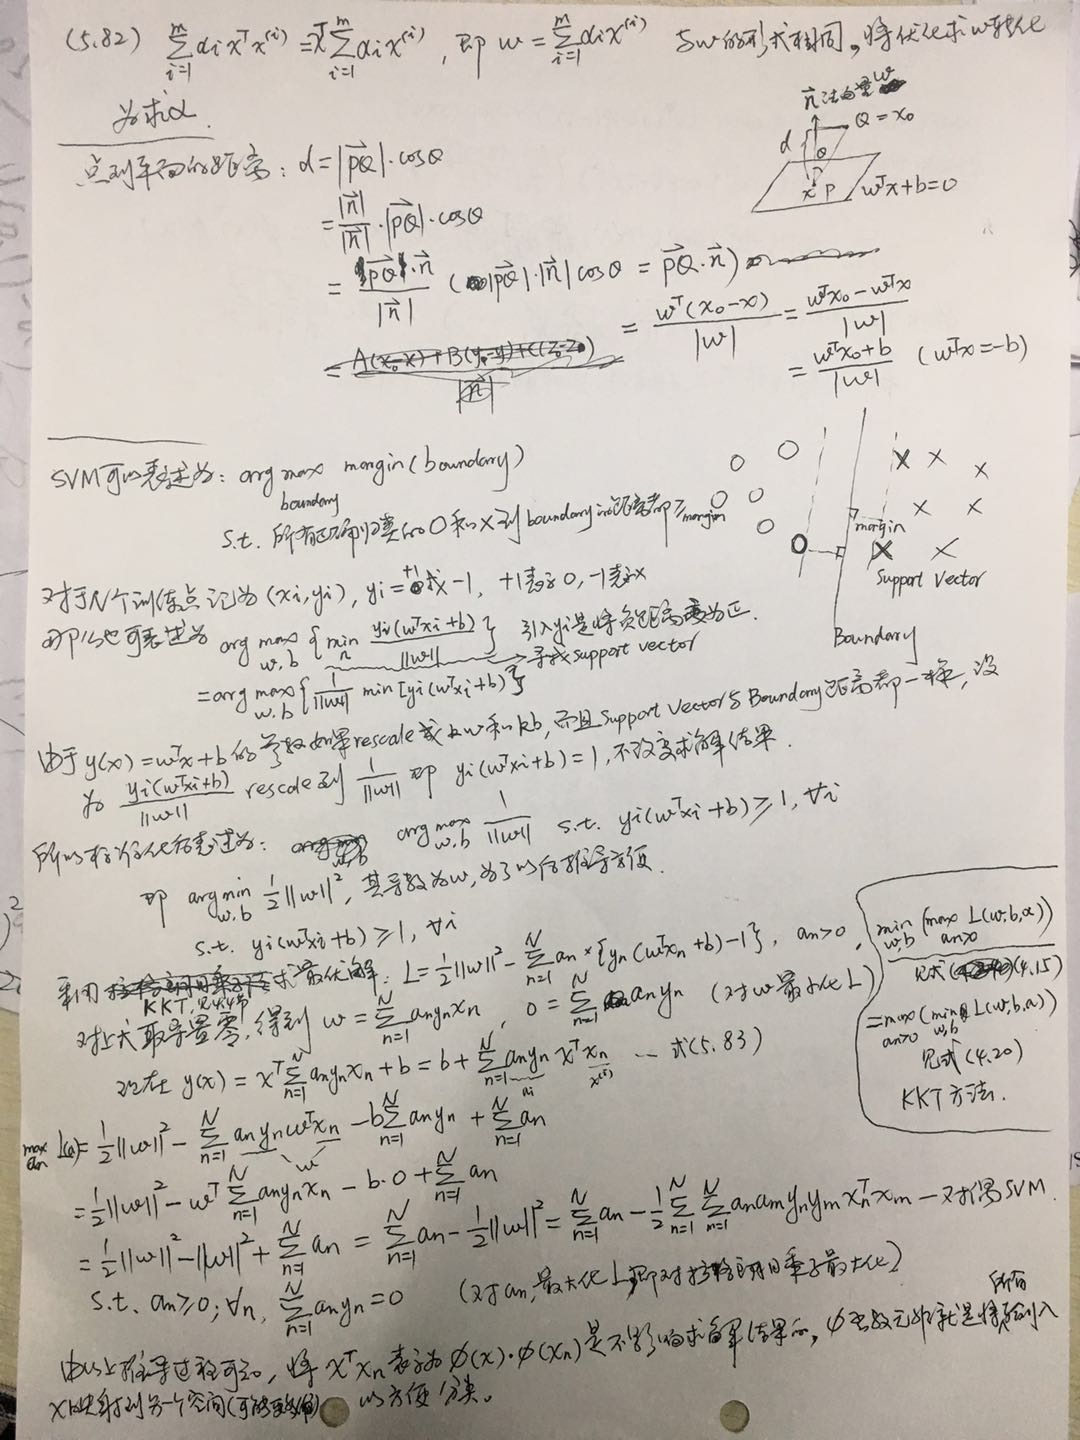 (5.82) $\sum_{i=1}^{m} \alpha_i x^T x^{(i)} = x^T \sum_{i=1}^{m} \alpha_i x^{(i)}$, 即 $w = \sum_{i=1}^{m} \alpha_i x^{(i)}$ 与w的形式相同。将优化求w转化
为求α.
$\vec{n}$法向量w
Q = x₀
d
θ
x P
wᵀx+b=0
点到平面的距离: $d = |\vec{PQ}| \cdot \cos\theta$
$= \frac{|\vec{n}|}{|\vec{n}|} \cdot |\vec{PQ}| \cdot \cos\theta$
$= \frac{\vec{PQ} \cdot \vec{n}}{|\vec{n}|}$ ($|\vec{PQ}| \cdot |\vec{n}| \cos\theta = \vec{PQ} \cdot \vec{n}$)
$= \frac{w^T(x_0 - x)}{|w|} = \frac{w^T x_0 - w^T x}{|w|}$
$= \frac{w^T x_0 + b}{|w|}$ ($w^T x = -b$)
SVM可以表述为: arg max margin (boundary)
boundary
s.t. 所有正确归类的O和X到boundary的距离都≥margin
margin
Support Vector
Boundary
对于N个训练点记为 (xi, yi), yi = +1或 -1, +1表示O, -1表示X
那么也可表述为 $\arg\max_{w,b} \{\min_n \frac{y_i(w^T x_i + b)}{||w||}\}$ 引入yi是将负距离变为正.
→寻找support vector
$= \arg\max_{w,b} \{\frac{1}{||w||} \min [y_i(w^T x_i + b)]\}$
由于 y(x) = wᵀx+b 的参数如果rescale成 kw 和 kb, 而且Support Vector与Boundary距离都一样, 设
为 $\frac{y_i(w^T x_i + b)}{||w||}$ rescale到 $\frac{1}{||w||}$ 即 $y_i(w^T x_i + b) = 1$, 不改变求解结果.
所以标准化后表述为: $\arg\max_{w,b} \frac{1}{||w||}$ s.t. $y_i(w^T x_i + b) ≥ 1, ∀i$
即 $\arg\min_{w,b} \frac{1}{2}||w||^2$, 其导数为w, 为了以后推导方便.
s.t. $y_i(w^T x_i + b) ≥ 1, ∀i$
利用 求最优解: $L = \frac{1}{2}||w||^2 - \sum_{n=1}^{N} a_n × \{y_n(w^T x_n + b) - 1\}$, an>0,
KKT, 见4.4节
对上式取导置零, 得到 $w = \sum_{n=1}^{N} a_n y_n x_n$, $0 = \sum_{n=1}^{N} a_n y_n$ (对w最小化L)
现在 $y(x) = x^T \sum_{n=1}^{N} a_n y_n x_n + b = b + \sum_{n=1}^{N} a_n y_n x^T x_n$ --- 式(5.83)
αi x⁽ⁱ⁾
$\min_{w,b} (\max_{a_n>0} L(w,b,a))$
见式 (4.15)
$= \max_{a_n>0} (\min_{w,b} L(w,b,a))$
见式 (4.20)
KKT方法.
$\max_{a_n} L(a) = \frac{1}{2}||w||^2 - \sum_{n=1}^{N} a_n y_n w^T x_n - b\sum_{n=1}^{N} a_n y_n + \sum_{n=1}^{N} a_n$
w
$= \frac{1}{2}||w||^2 - w^T \sum_{n=1}^{N} a_n y_n x_n - b \cdot 0 + \sum_{n=1}^{N} a_n$
$= \frac{1}{2}||w||^2 - ||w||^2 + \sum_{n=1}^{N} a_n = \sum_{n=1}^{N} a_n - \frac{1}{2}||w||^2 = \sum_{n=1}^{N} a_n - \frac{1}{2}\sum_{n=1}^{N}\sum_{m=1}^{N} a_n a_m y_n y_m x_n^T x_m$ — 对偶SVM.
s.t. an≥0; ∀n, $\sum_{n=1}^{N} a_n y_n = 0$ (对an最大化L, 即对拉格朗日乘子最大化)
由以上推导过程可知, 将 xᵀxn 表示为 φ(x)·φ(xn) 是不影响求解结果的, φ函数 就是将所有输入
X映射到另一个空间( ) 以方便分类。